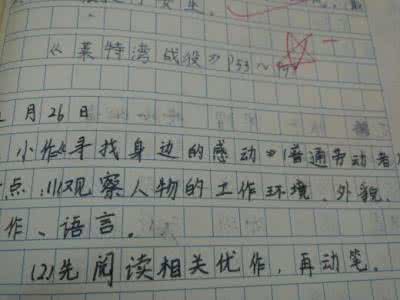 《莱特湾战役》P53～
月26日
小作《寻找身边的感动》(普通劳动者
点:(1)观察人物的工作环境、外貌、
作、语言。
(2)先阅读相关优作,再动笔。